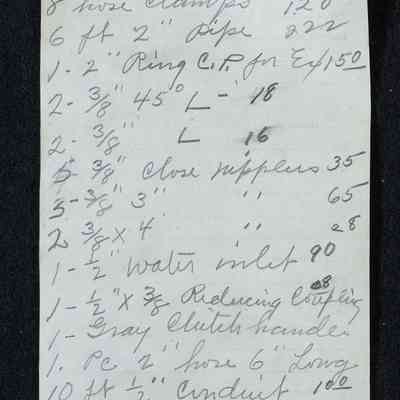 8 hose clamps 120
6 ft 2" Pipe 222
1 - 2" Ring C.P. for Ex 150
2 - 3/8" 45° L - 18
2 - 3/8" L 16
5 3/8" Close nipplers 35
3 - 3/8" 3" " 65
2 3/8 x 4 " 28
1 - 1/2" water inlet 90
1 - 1/2" x 3/8 Reducing Coupling 08
1 - Gray Clutch handle
1. Pc 2" hose 6" Long
10 ft 1/2" Conduit 100